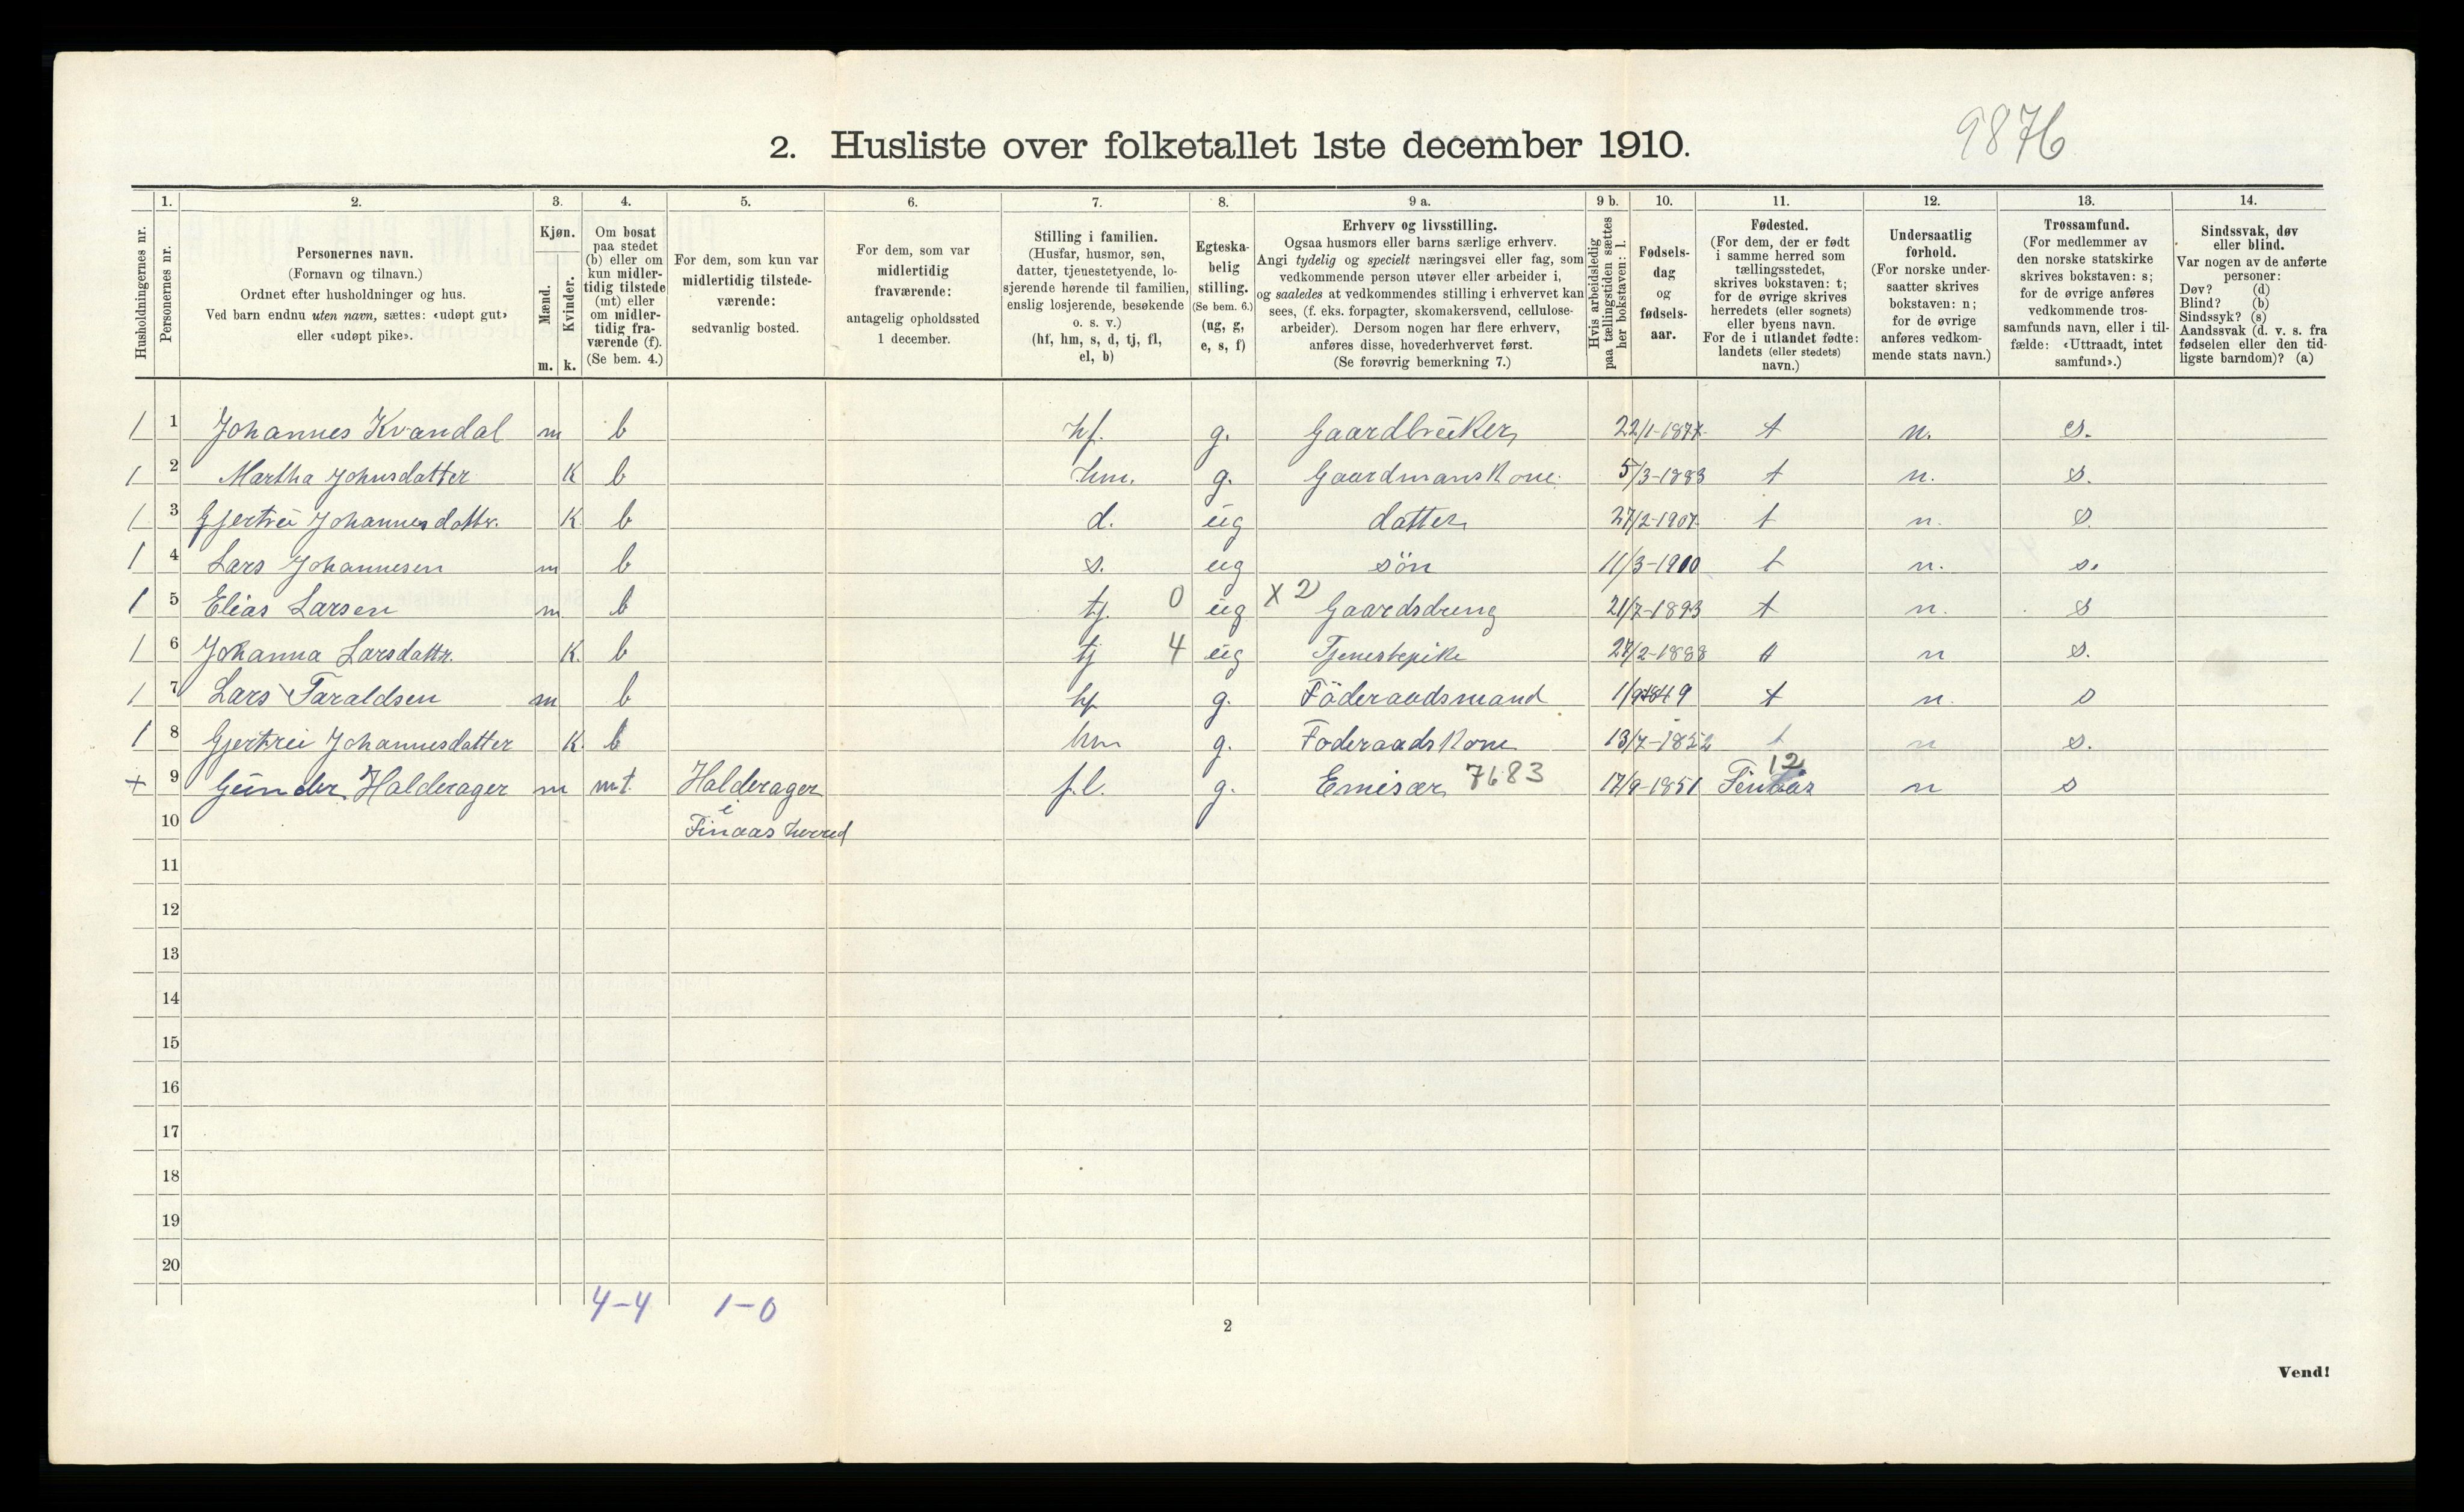 9876
2. Husliste over folketallet 1ste december 1910.
Husholdningernes nr.
1.
Personernes nr.
2.
Personernes navn.
(Fornavn og tilnavn.)
Ordnet efter husholdninger og hus.
Ved barn endnu uten navn, sættes: «udøpt gut»
eller «udøpt pike».
3.
Kjøn.
Mænd.
Kvinder.
m. k.
4.
Om bosat
paa stedet
(b) eller om
kun midler-
tidig tilstede
(mt) eller
om midler-
tidig fra-
værende (f).
(Se bem. 4.)
5.
For dem, som kun var
midlertidig tilstede-
værende:
sedvanlig bosted.
6.
For dem, som var
midlertidig
fraværende:
antagelig opholdssted
1 december.
7.
Stilling i familien.
(Husfar, husmor, søn,
datter, tjenestetyende, lo-
sjerende hørende til familien,
enslig losjerende, besøkende
o. s. v.)
(hf, hm, s, d, tj, fl,
el, b)
8.
Egteska-
belig
stilling.
(Se bem. 6.)
(ug, g,
e, s, f)
9 a.
Erhverv og livsstilling.
Ogsaa husmors eller barns særlige erhverv.
Angi tydelig og specielt næringsvei eller fag, som
vedkommende person utøver eller arbeider i,
og saaledes at vedkommendes stilling i erhvervet kan
sees, (f. eks. forpagter, skomakersvend, cellulose-
arbeider). Dersom nogen har flere erhverv,
anføres disse, hovederhvervet først.
(Se forøvrig bemerkning 7.)
9 b.
Hvis arbeidsledig
paa tællingstiden sættes
her bokstaven: l.
10.
Fødsels-
dag
og
fødsels-
aar.
11.
Fødested.
(For dem, der er født
i samme herred som
tællingsstedet,
skrives bokstaven: t;
for de øvrige skrives
herredets (eller sognets)
eller byens navn.
For de i utlandet fødte:
landets (eller stedets)
navn.)
12.
Undersaatlig
forhold.
(For norske under-
saatter skrives
bokstaven: n;
for de øvrige
anføres vedkom-
mende stats navn.)
13.
Trossamfund.
(For medlemmer av
den norske statskirke
skrives bokstaven: s;
for de øvrige anføres
vedkommende tros-
samfunds navn, eller i til-
fælde: «Uttraadt, intet
samfund».)
14.
Sindssvak, døv
eller blind.
Var nogen av de anførte
personer:
Døv? (d)
Blind? (b)
Sindssyk? (s)
Aandssvak (d. v. s. fra
fødselen eller den tid-
ligste barndom)? (a)
1 1 Johannes Kvandal m b hf. g. Gaardbruker 22/1-1877 t n. s.
1 2 Martha Johnsdatter K b hm. g. Gaardmanskone 5/3-1883 t n. s.
1 3 Gjertrei Johannesdattr. K b d. ug datter 27/2-1907 t n. s.
1 4 Lars Johannesen m b s. ug sön 11/3-1910 t n. s.
1 5 Elias Larsen m b tj. 0 ug X 2 Gaardsdreng 21/7-1893 t n. s
1 6 Johanna Larsdattr. K. b tj 4 ug Tjenestepike 2/2-1888 t n s.
1 7 Lars Taraldsen m b hf g. Föderaadsmand 1/9 1849 t n. s
1 8 Gjertrei Johannesdatter K. b hm g. Foderaadskone 13/7-1852 t n s.
+ 9 Gunder Halderager m mt. Halderager f.l. g. Emisær 7683 17/9-1851 12 n s
10 i Finaas herred
11
12
13
14
15
16
17
18
19
20
4-4 1-0
2
Vend!